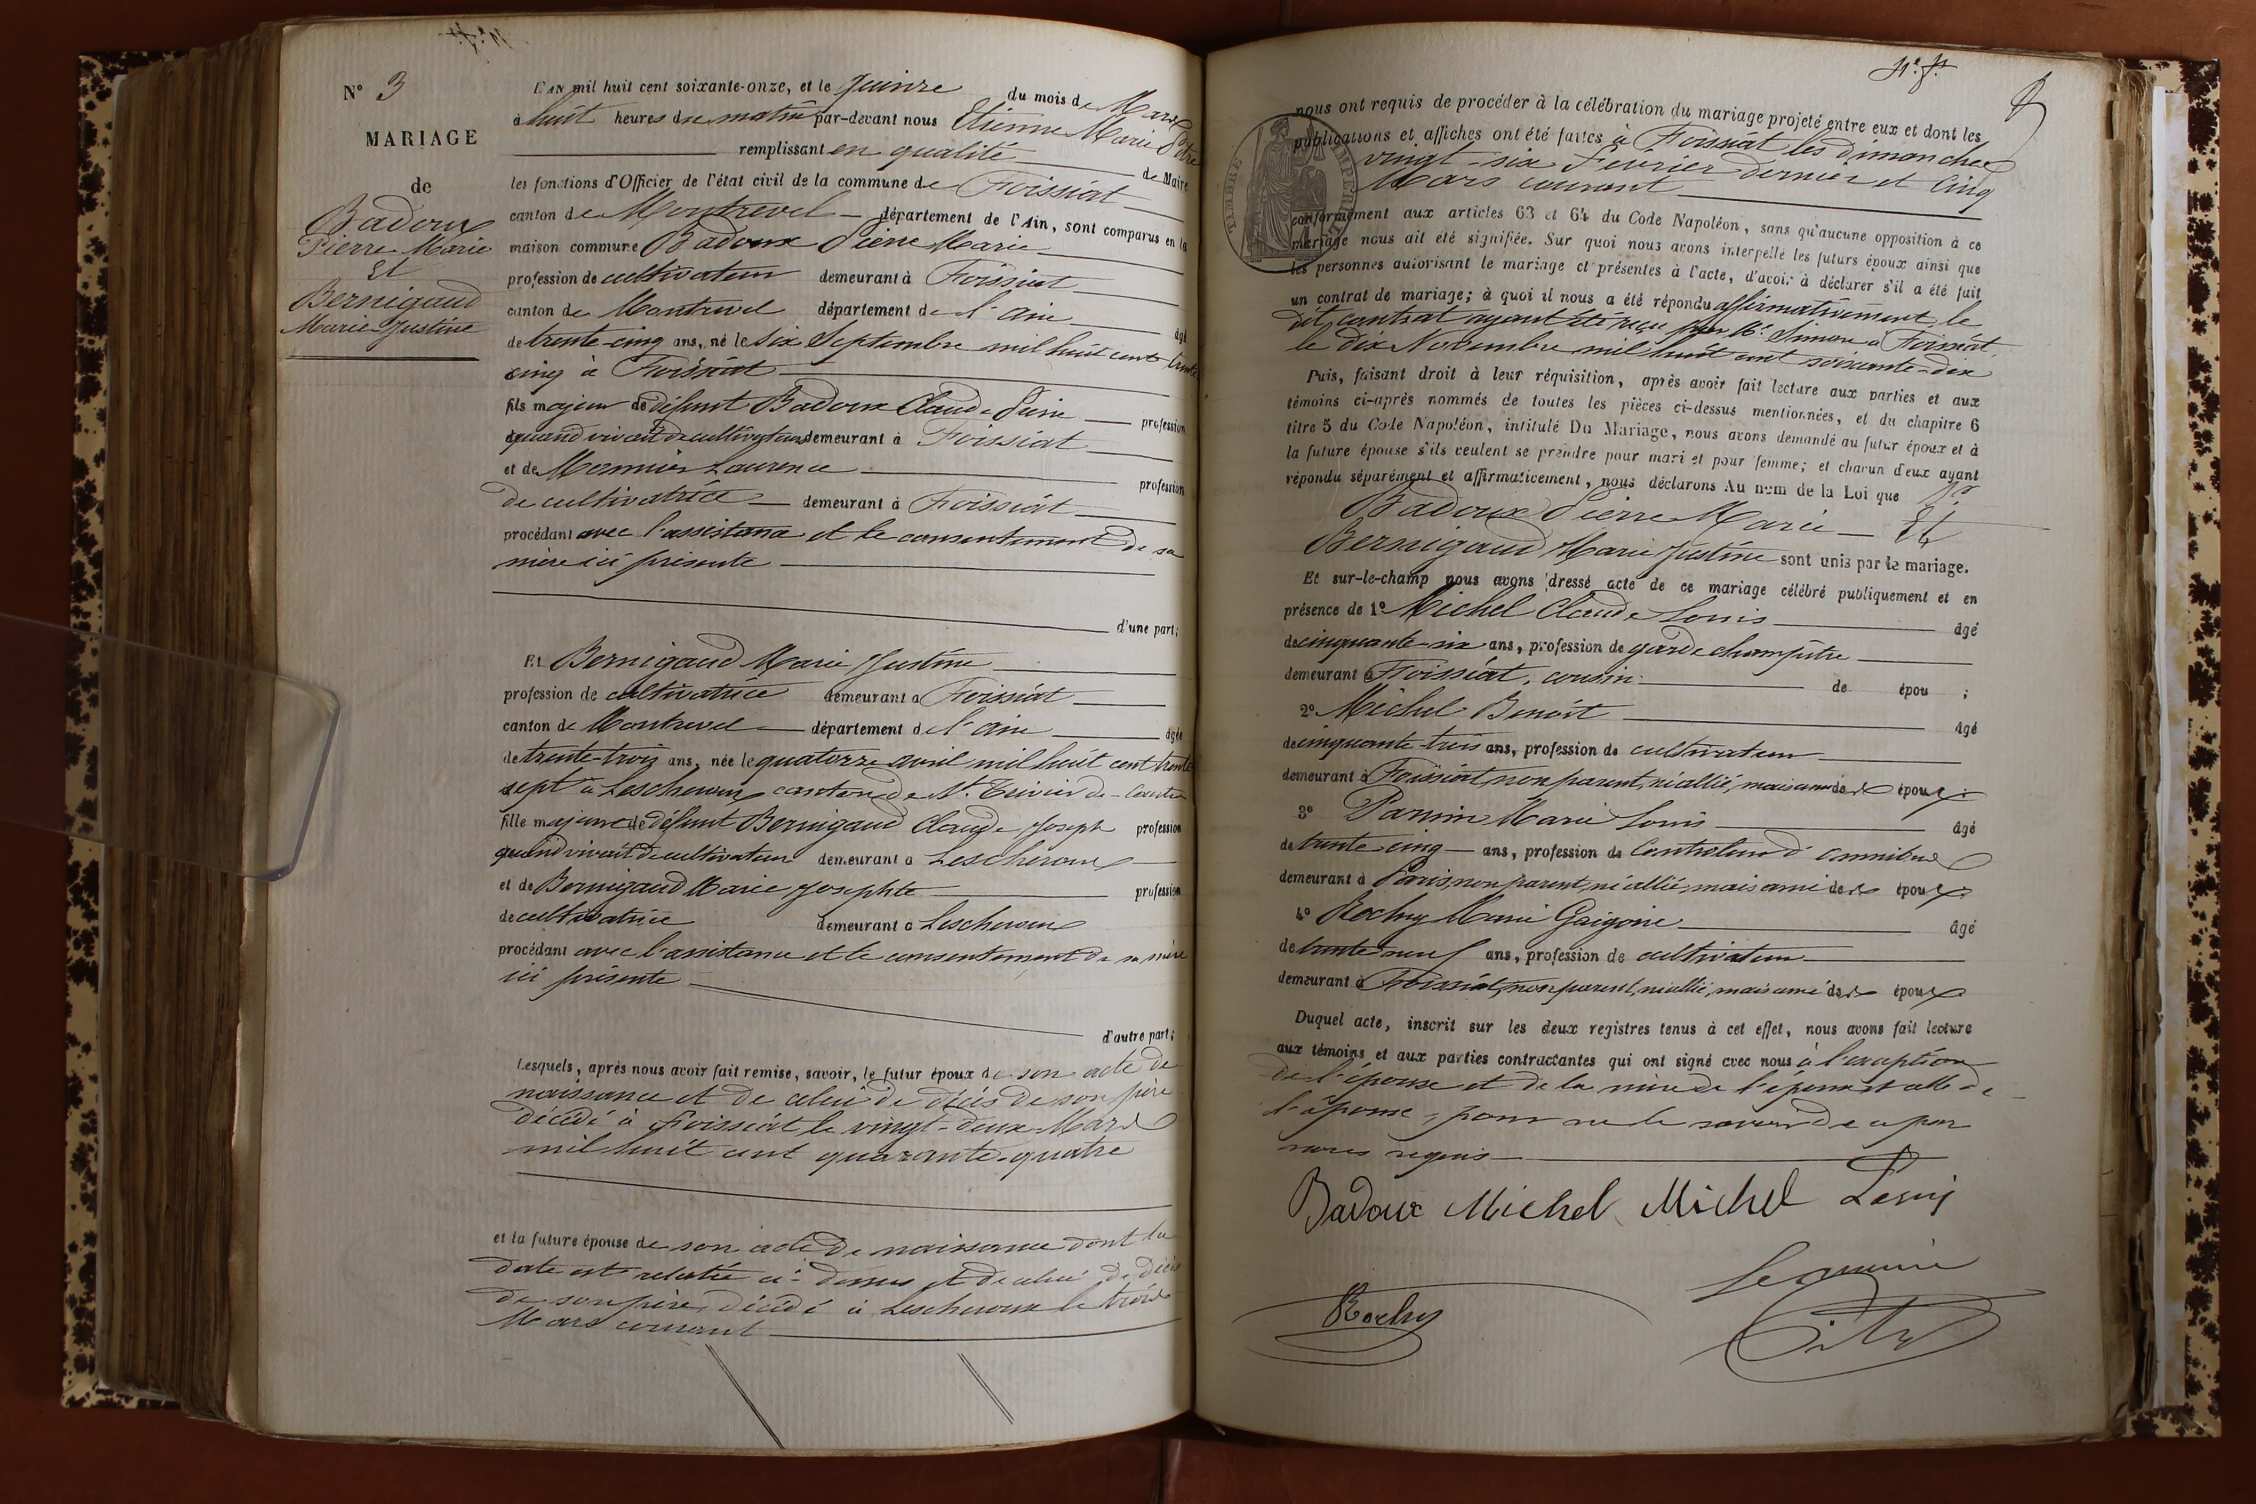 N° 3
MARIAGE
de
Badoux
Pierre Marie
Et
Bernigaud
Marie-Justine
L'AN mil huit cent soixante-onze, et le quinze du mois de Mars
à huit heures du matin par-devant nous Etienne Marie
remplissant en qualité de Maire
les fonctions d'Officier de l'état civil de la commune de Foissiat
canton de Montrevel département de l'Ain, sont comparus en la
maison commune Badoux Pierre Marie
profession de cultivateur demeurant à Foissiat
canton de Montrevel département de l'Ain âgé
de trente-cinq ans, né le six Septembre mil huit cent trente
cinq à Foissiat
fils majeur de défunt Badoux Claude Pierre profession
quand vivait de cultivateur demeurant à Foissiat
et de Monnier Laurence profession
de cultivatrice demeurant à Foissiat
procédant avec l'assistance et le consentement de sa
mère ici présente
d'une part;
Et Bernigaud Marie Justine
profession de cultivatrice demeurant à Foissiat
canton de Montrevel département de l'Ain âgée
de trente-trois ans, née le quatorze avril mil huit cent trente
sept à Lescheroux canton de St. Trivier de-Courtes
fille majeure de défunt Bernigaud Claude Joseph profession
quand vivait de cultivateur demeurant à Lescheroux
et de Bernigaud Marie Josephte profession
de cultivatrice demeurant à Lescheroux
procédant avec l'assistance et le consentement de sa mère
ici présente
d'autre part;
Lesquels, après nous avoir fait remise, savoir, le futur époux de son acte de
naissance et de celui de décès de son père
décédé à Foissiat le vingt-deux Mars
mil huit cent quarante-quatre
et la future épouse de son acte de naissance dont la
date est relatée ci-dessus et de celui de décès
de son père, décédé à Lescheroux le trois
Mars courant
nous ont requis de procéder à la célébration du mariage projeté entre eux et dont les
publications et affiches ont été faites à Foissiat les dimanches
vingt-six Février dernier et Cinq
Mars courant
conformément aux articles 63 et 64 du Code Napoléon, sans qu'aucune opposition à ce
mariage nous ait été signifiée. Sur quoi nous avons interpellé les futurs époux ainsi que
les personnes autorisant le mariage et présentes à l'acte, d'avoir à déclarer s'il a été fait
un contrat de mariage; à quoi il nous a été répondu affirmativement, le
dit contrat ayant été reçu par Me. Simon à Foissiat,
le dix Novembre mil huit cent soixante-dix
Puis, faisant droit à leur réquisition, après avoir fait lecture aux parties et aux
témoins ci-après nommés de toutes les pièces ci-dessus mentionnées, et du chapitre 6
titre 5 du Code Napoléon, intitulé Du Mariage, nous avons demandé au futur époux et à
la future épouse s'ils veulent se prendre pour mari et pour femme; et chacun d'eux ayant
répondu séparément et affirmativement, nous déclarons Au nom de la Loi que
Badoux Pierre Marie Et
Bernigaud Marie Justine sont unis par le mariage.
Et sur-le-champ nous avons dressé acte de ce mariage célébré publiquement et en
présence de 1° Michel Claude Louis âgé
de cinquante-six ans, profession de garde champêtre
demeurant à Foissiat, cousin de épou ;
2° Michel Benoît âgé
de cinquante-trois ans, profession de cultivateur
demeurant à Foissiat, non parent, ni allié, mais ami des époux;
3° Marie Louis âgé
de trente-cinq ans, profession de Controleur d'omnibus
demeurant à Paris, non parent, ni allié, mais ami des époux;
4° Rochy Marie Grégoire âgé
de trente-neuf ans, profession de cultivateur
demeurant à Foissiat, non parent, ni allié, mais ami des époux
Duquel acte, inscrit sur les deux registres tenus à cet effet, nous avons fait lecture
aux témoins et aux parties contractantes qui ont signé avec nous à l'exception
de l'épouse et de la mère de l'époux et celle de
l'épouse, pour ne le savoir de ce par
nous requis
Badoux Michel Michel Louis
Le maire
Rochy